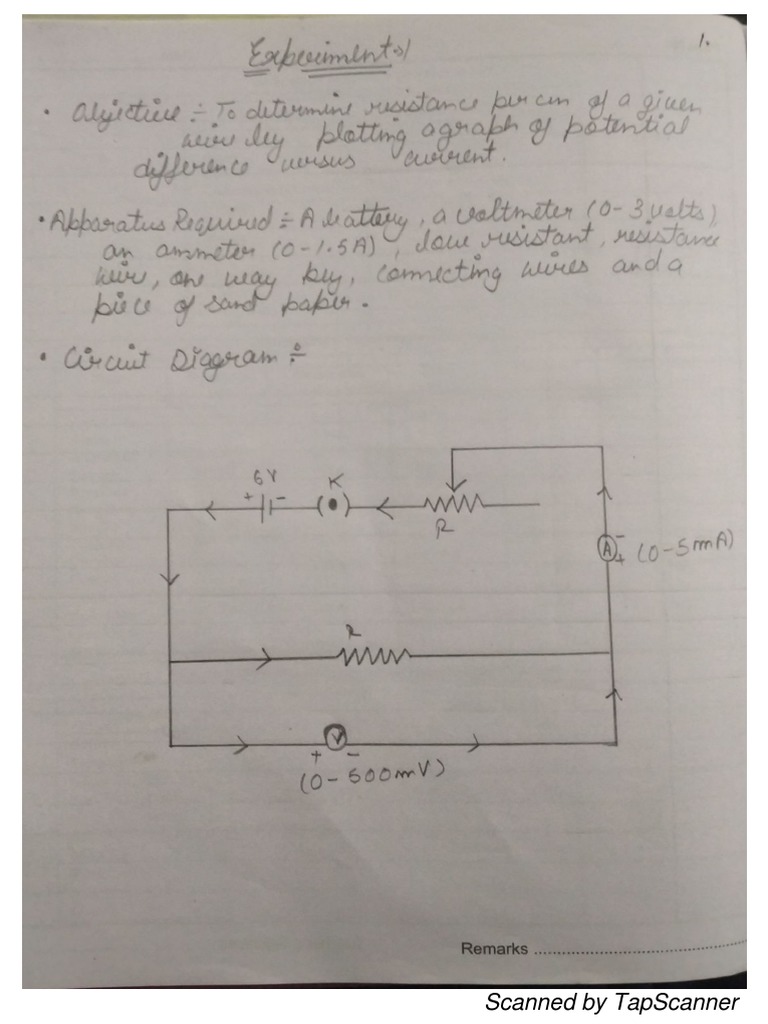 1.
Experiment:1
• Objective ÷ To determine resistance per cm of a given
wire by plotting a graph of potential
difference versus current.
• Apparatus Required ÷ A battery, a voltmeter (0-3 volts),
an ammeter (0-1.5A), low resistant, resistance
wire, one way key, connecting wires and a
piece of sand paper.
• Circuit Diagram ÷
6V
+ - (•) K
R
A - + (0-5mA)
R
V
+ -
(0-500mV)
Remarks
Scanned by TapScanner